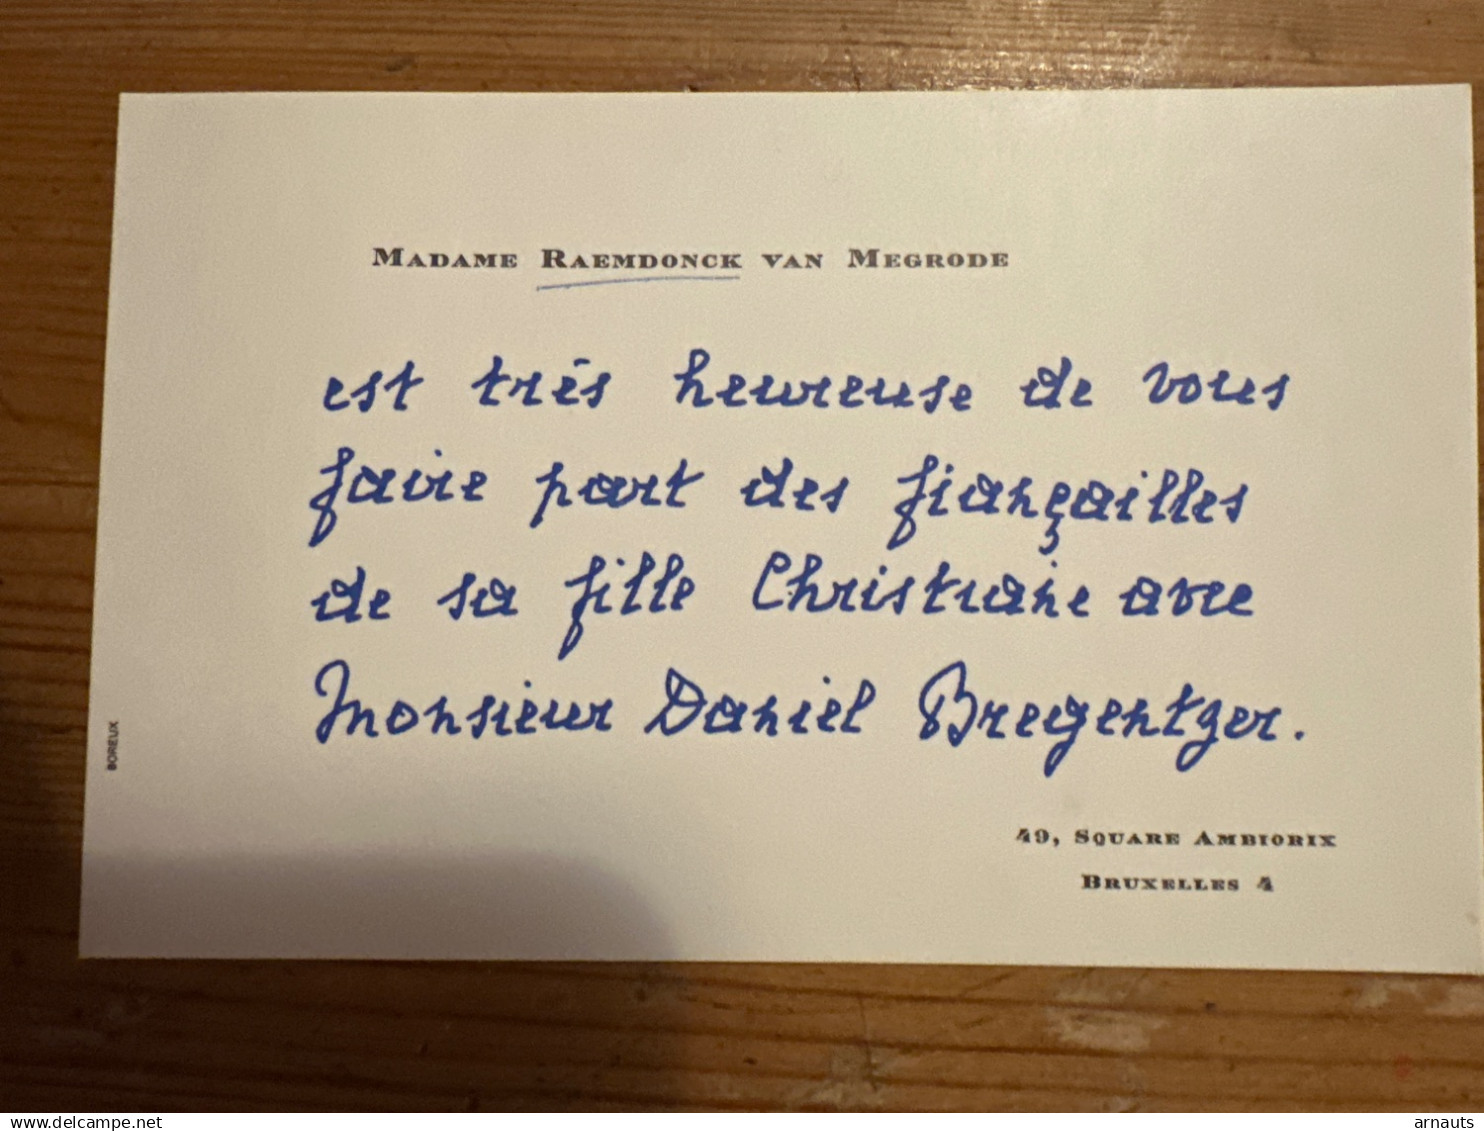 MADAME RAEMDONCK VAN MEGRODE
est très heureuse de vous
faire part des fiançailles
de sa fille Christiane avec
Monsieur Daniel Bregentzer.
49, SQUARE AMBIORIX
BRUXELLES 4
BOREUX
delcampe.net
arnauts